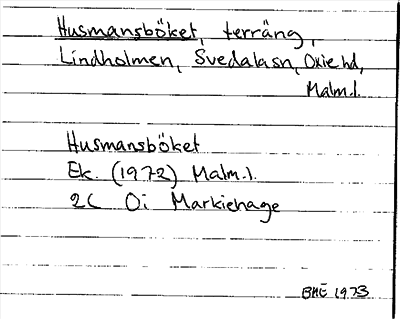 Husmansböket, terräng,
Lindholmen, Svedala sn, Oxie hd,
Malm.l.
Husmansböket
Ek. (1972) Malm.l.
2C Oi Markiehage
BHE 1973